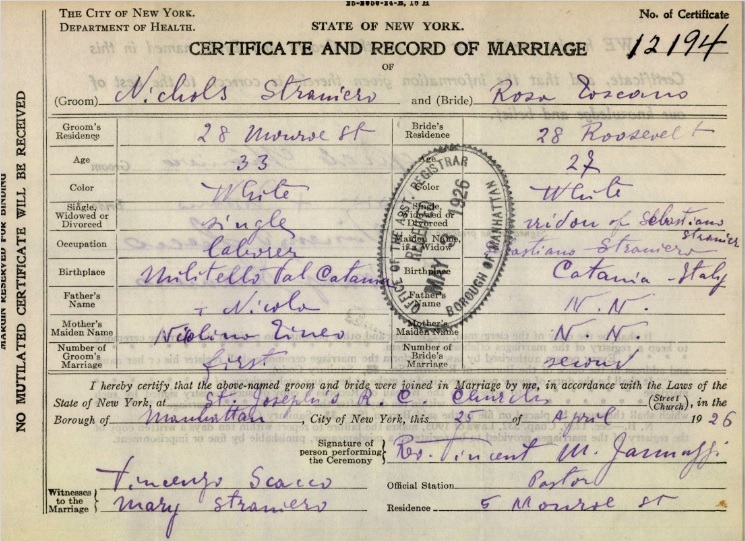 THE CITY OF NEW YORK.
DEPARTMENT OF HEALTH.
STATE OF NEW YORK.
No. of Certificate
12194
CERTIFICATE AND RECORD OF MARRIAGE
OF
(Groom) Nichols Straniero and (Bride) Rosa Toscano
Groom's Residence 28 Monroe St Bride's Residence 28 Roosevelt
Age 33 Age 27
Color White Color White
Single, Widowed or Divorced single Single, Widowed or Divorced widow of Sebastiano Straniero
Occupation laborer Maiden Name, if a Widow Straniero
Birthplace Militello Val Catania Birthplace Catania - Italy
Father's Name Nicola Father's Name N. N.
Mother's Maiden Name Mother's Maiden Name N. N.
Number of Groom's Marriage first Number of Bride's Marriage second
OFFICE OF THE ASST. REGISTRAR
MAY 3 1926
BOROUGH OF MANHATTAN
I hereby certify that the above-named groom and bride were joined in Marriage by me, in accordance with the Laws of the
State of New York, at St. Joseph's R. C. Church (Street Church), in the
Borough of Manhattan, City of New York, this 25 of April 1926
Signature of person performing the Ceremony Rev. Vincent M.
Witnesses to the Marriage Vincenzo Scacco
Mary Straniero
Official Station Pastor
Residence 5 Monroe St
MARGIN RESERVED FOR BINDING
NO MUTILATED CERTIFICATE WILL BE RECEIVED